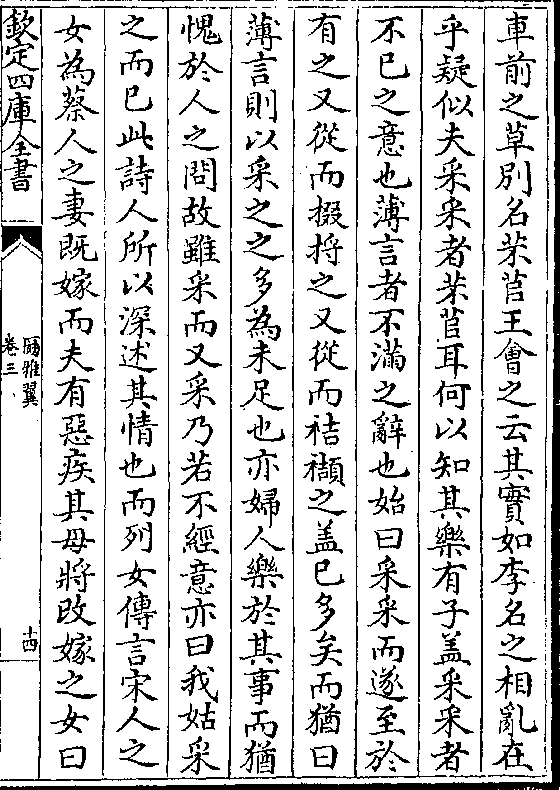 車前之草別名芣苢王會之云其實如李名之相亂在
乎疑似夫采采者芣苢耳何以知其樂有子蓋采采者
不已之意也薄言者不滿之辭也始曰采采而遂至於
有之又從而掇捋之又從而袺襭之盖已多矣而猶曰
薄言則以采之之多為未足也亦婦人樂於其事而猶
愧於人之問故雖采而又采乃若不經意亦曰我姑采
之而已此詩人所以深述其情也而列女傳言宋人之
女為蔡人之妻既嫁而夫有惡疾其母將改嫁之女曰
欽定四庫全書
爾雅翼
卷三
十四